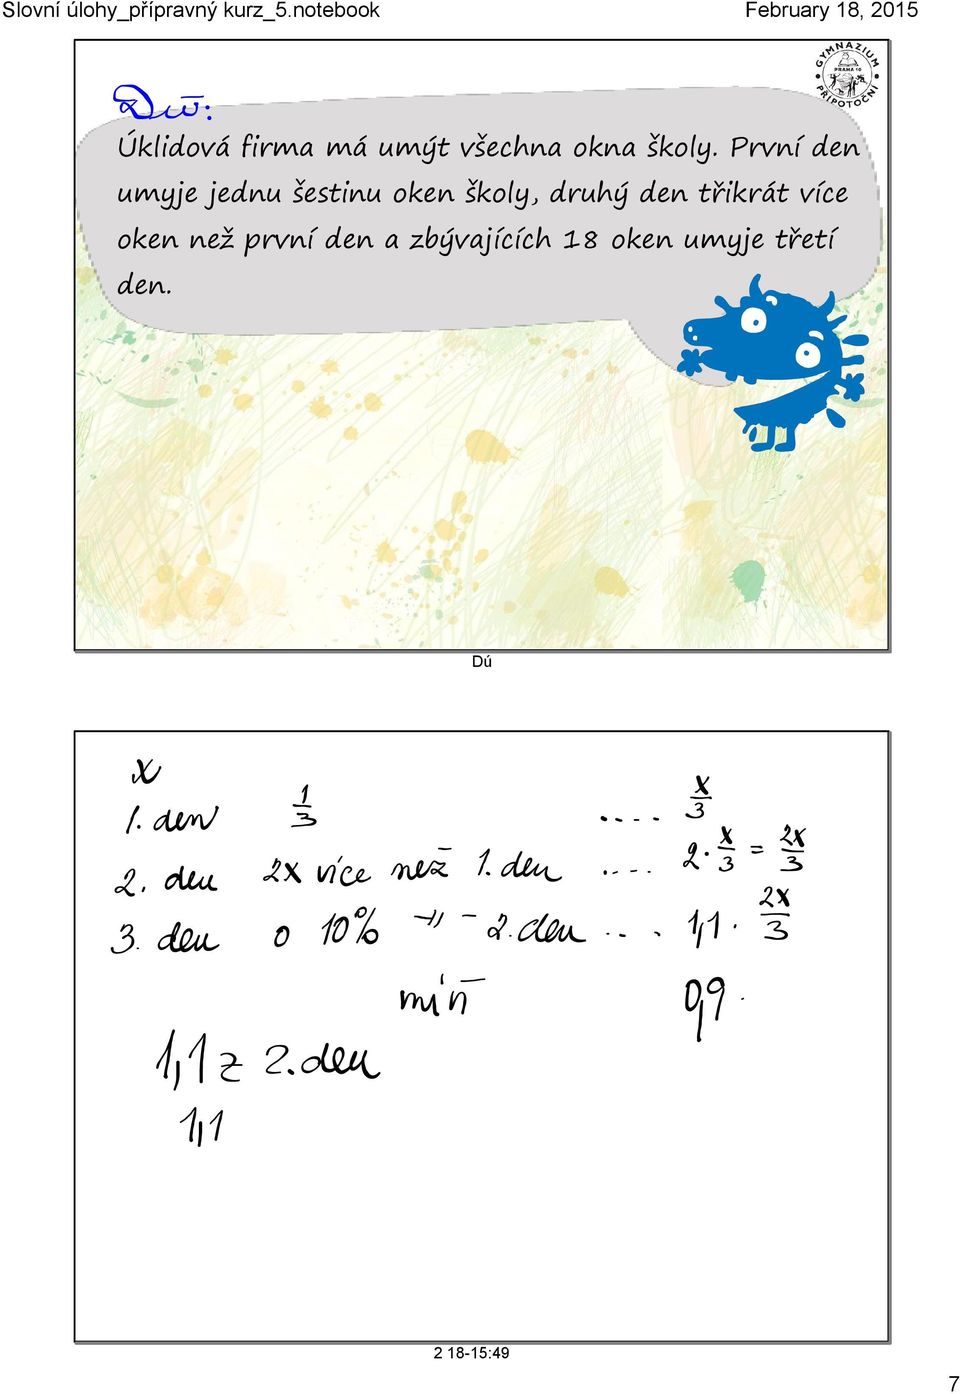 Slovní úlohy_přípravný kurz_5.notebook February 18, 2015
GYMNAZIUM
PRAHA 10
PŘÍPOTOČNÍ
Dú:
Úklidová firma má umýt všechna okna školy. První den
umyje jednu šestinu oken školy, druhý den třikrát více
oken než první den a zbývajících 18 oken umyje třetí
den.
Dú
x
1. den 1/3 .... x/3
2. den 2x více než 1. den .... 2 · x/3 = 2x/3
3. den o 10% -"- 2. den ... . 1,1 · 2x/3
míň 0,9 ·
1,1 z 2. den
1,1
2 18-15:49
7